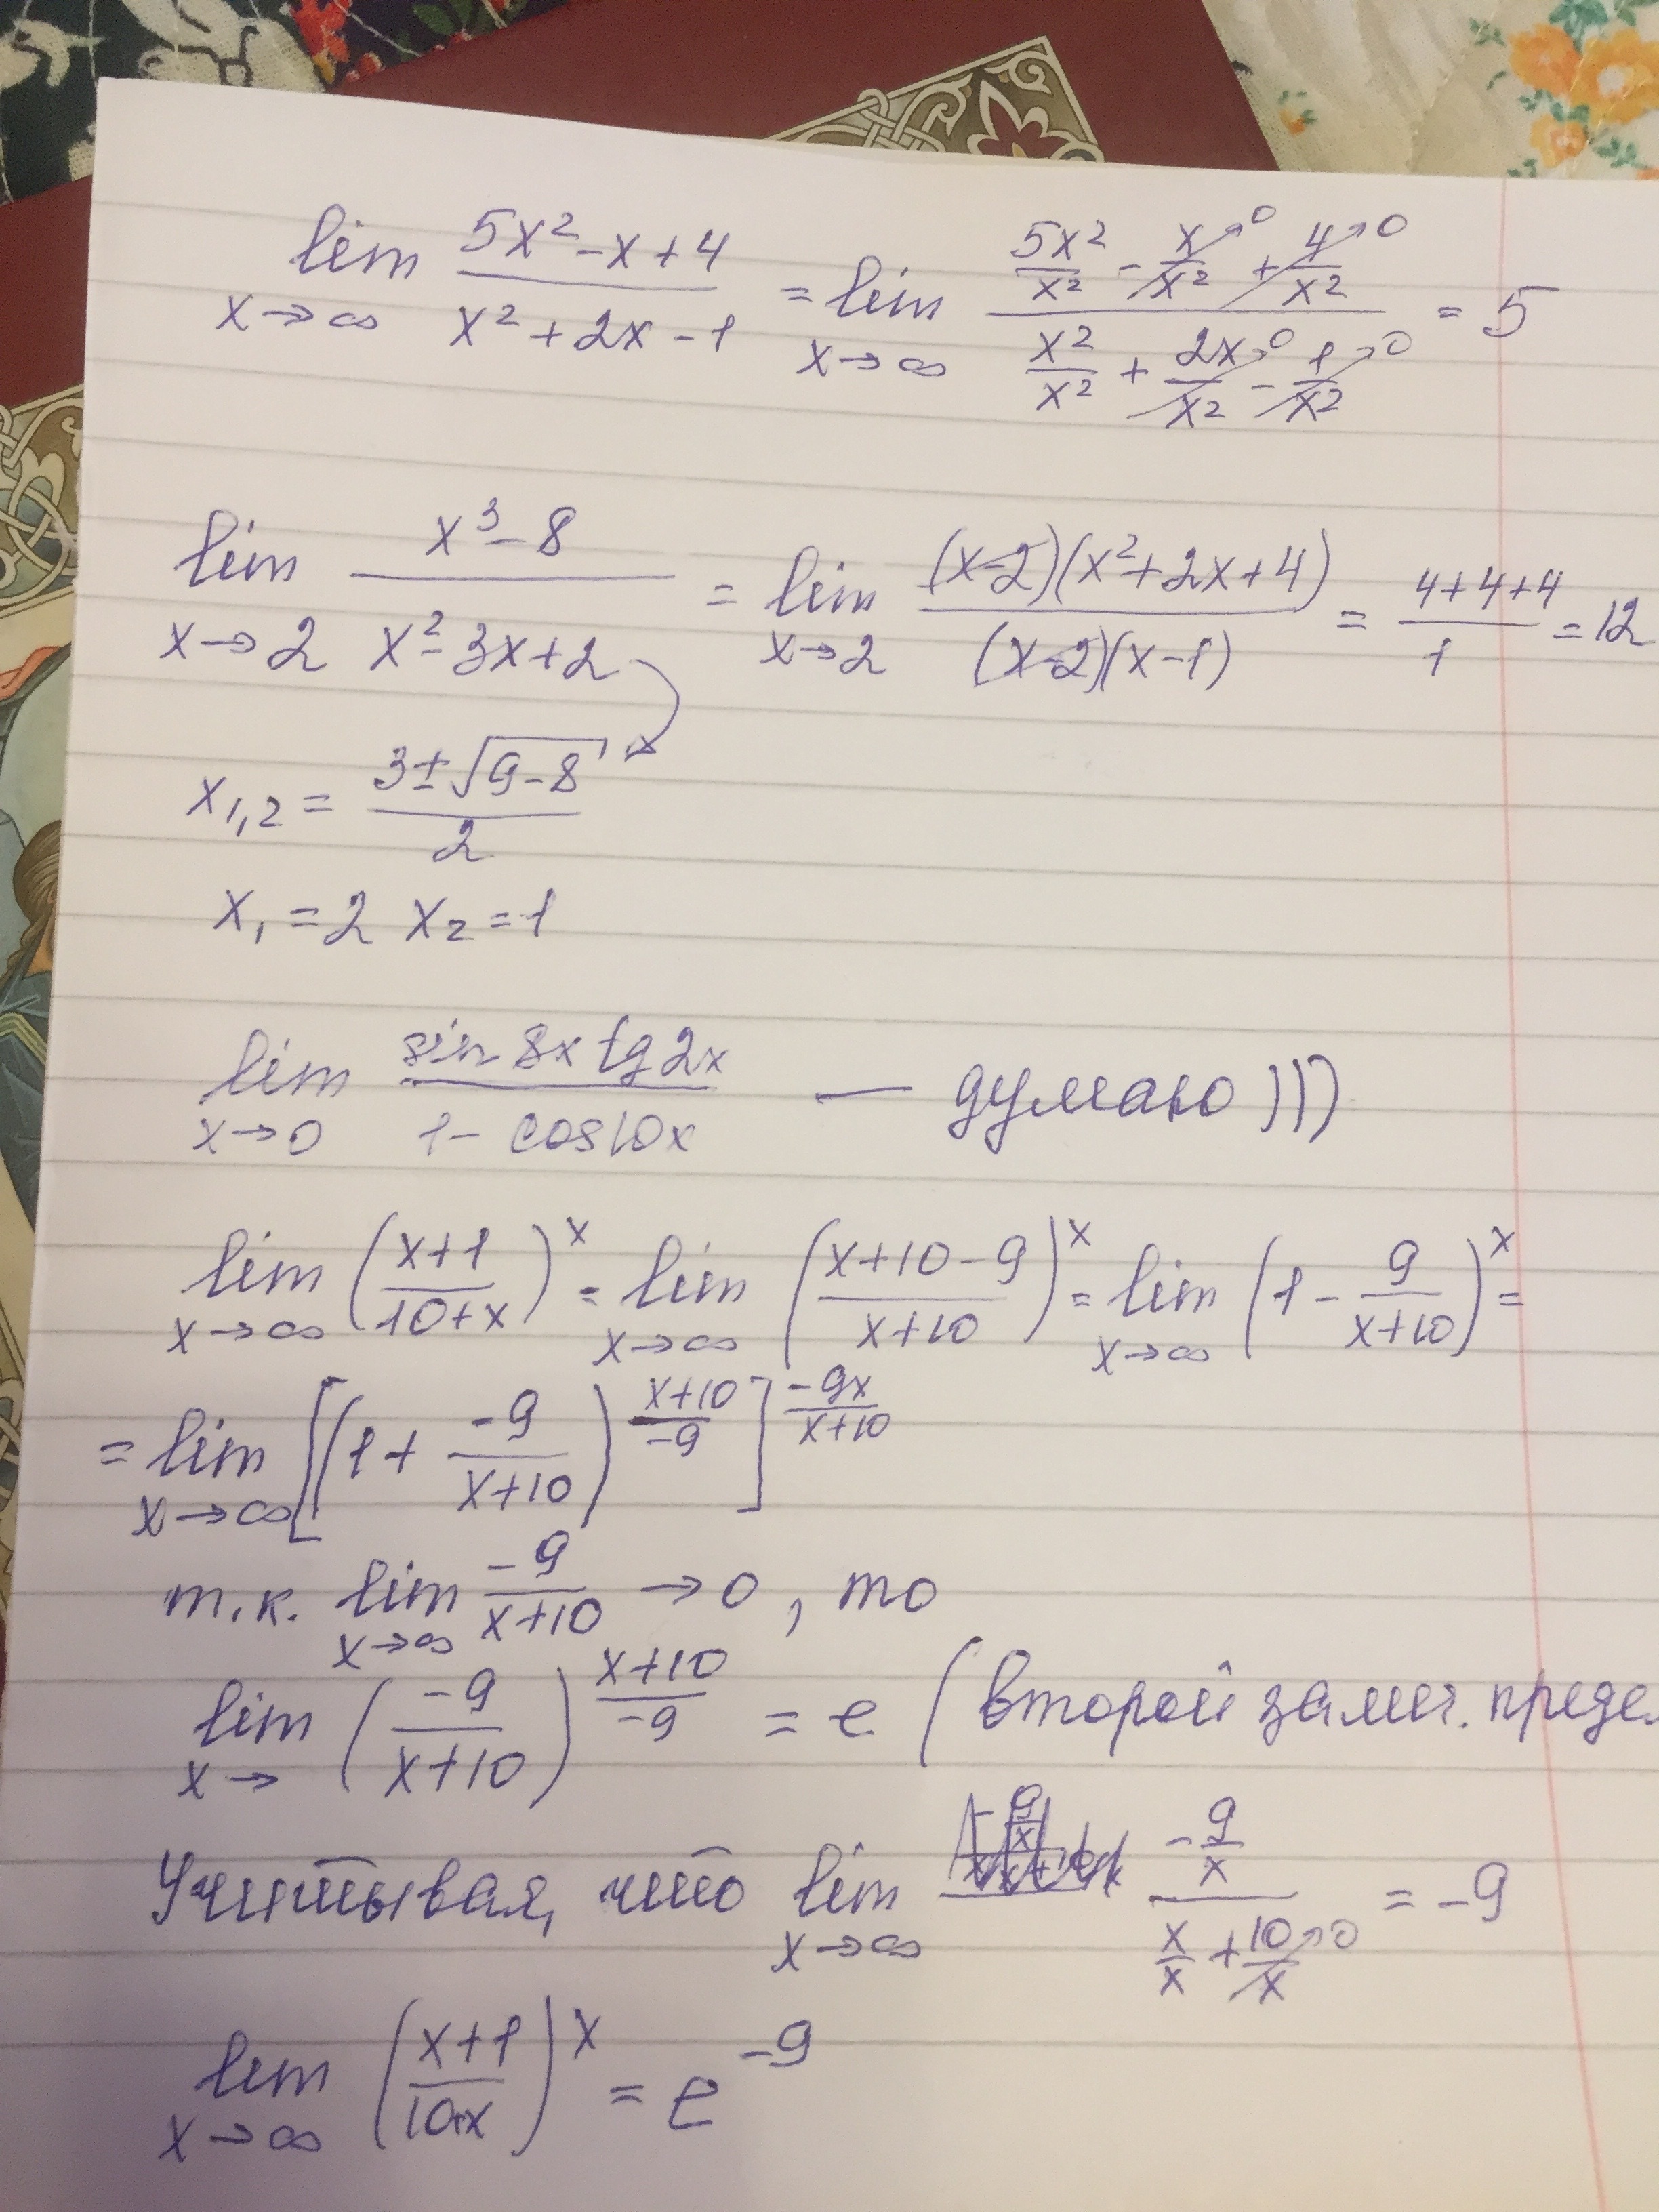 lim x→∞ (5x² - x + 4)/(x² + 2x - 1) = lim x→∞ (5x²/x² - x/x²→0 + 4/x²→0)/(x²/x² + 2x/x²→0 - 1/x²→0) = 5
lim x→2 (x³ - 8)/(x² - 3x + 2) = lim x→2 (x-2)(x²+2x+4)/(x-2)(x-1) = (4+4+4)/1 = 12
x₁,₂ = (3±√(9-8))/2
x₁ = 2 x₂ = 1
lim x→0 (sin 8x tg 2x)/(1 - cos 10x) — думаю)))
lim x→∞ ((x+1)/(10+x))^x = lim x→∞ ((x+10-9)/(x+10))^x = lim x→∞ (1 - 9/(x+10))^x =
= lim x→∞ [(1 + -9/(x+10))^((x+10)/-9)]^(-9x/(x+10))
т.к. lim x→∞ -9/(x+10) → 0, то
lim x→ (-9/(x+10))^((x+10)/-9) = e (второй замеч. предел
Учитывая, что lim x→∞ (-9/x)/(x/x + 10/x→0) = -9
lim x→∞ ((x+1)/(10+x))^x = e^-9